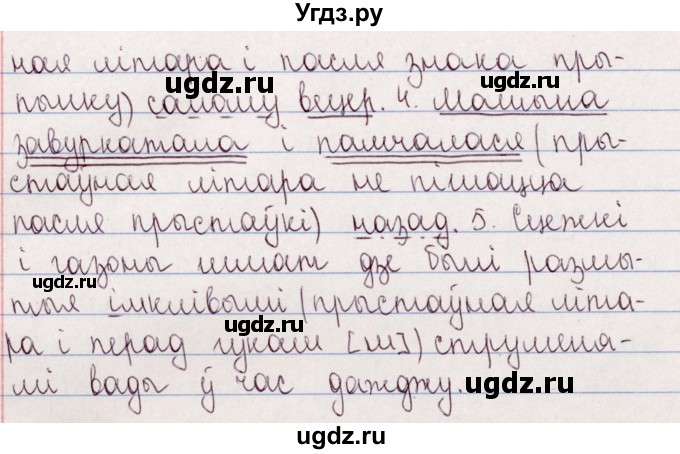 Угдз.ру
ная літара і пасля знака пры-
пынку) самому вецер. 4. Машына
завуркатала і памчалася (пры-
стаўная літара не пішацца
пасля прыстаўкі) назад. 5. Сцежкі
і газоны шмат дзе былі размы-
тыя імклівымі (прыстаўная літа-
ра і перад гукам [м]) струменя-
мі вады ў час дажджу.
ugdz.ru
ugdz.ru
ugdz.ru
ugdz.ru
ugdz.ru
ugdz.ru
ugdz.ru